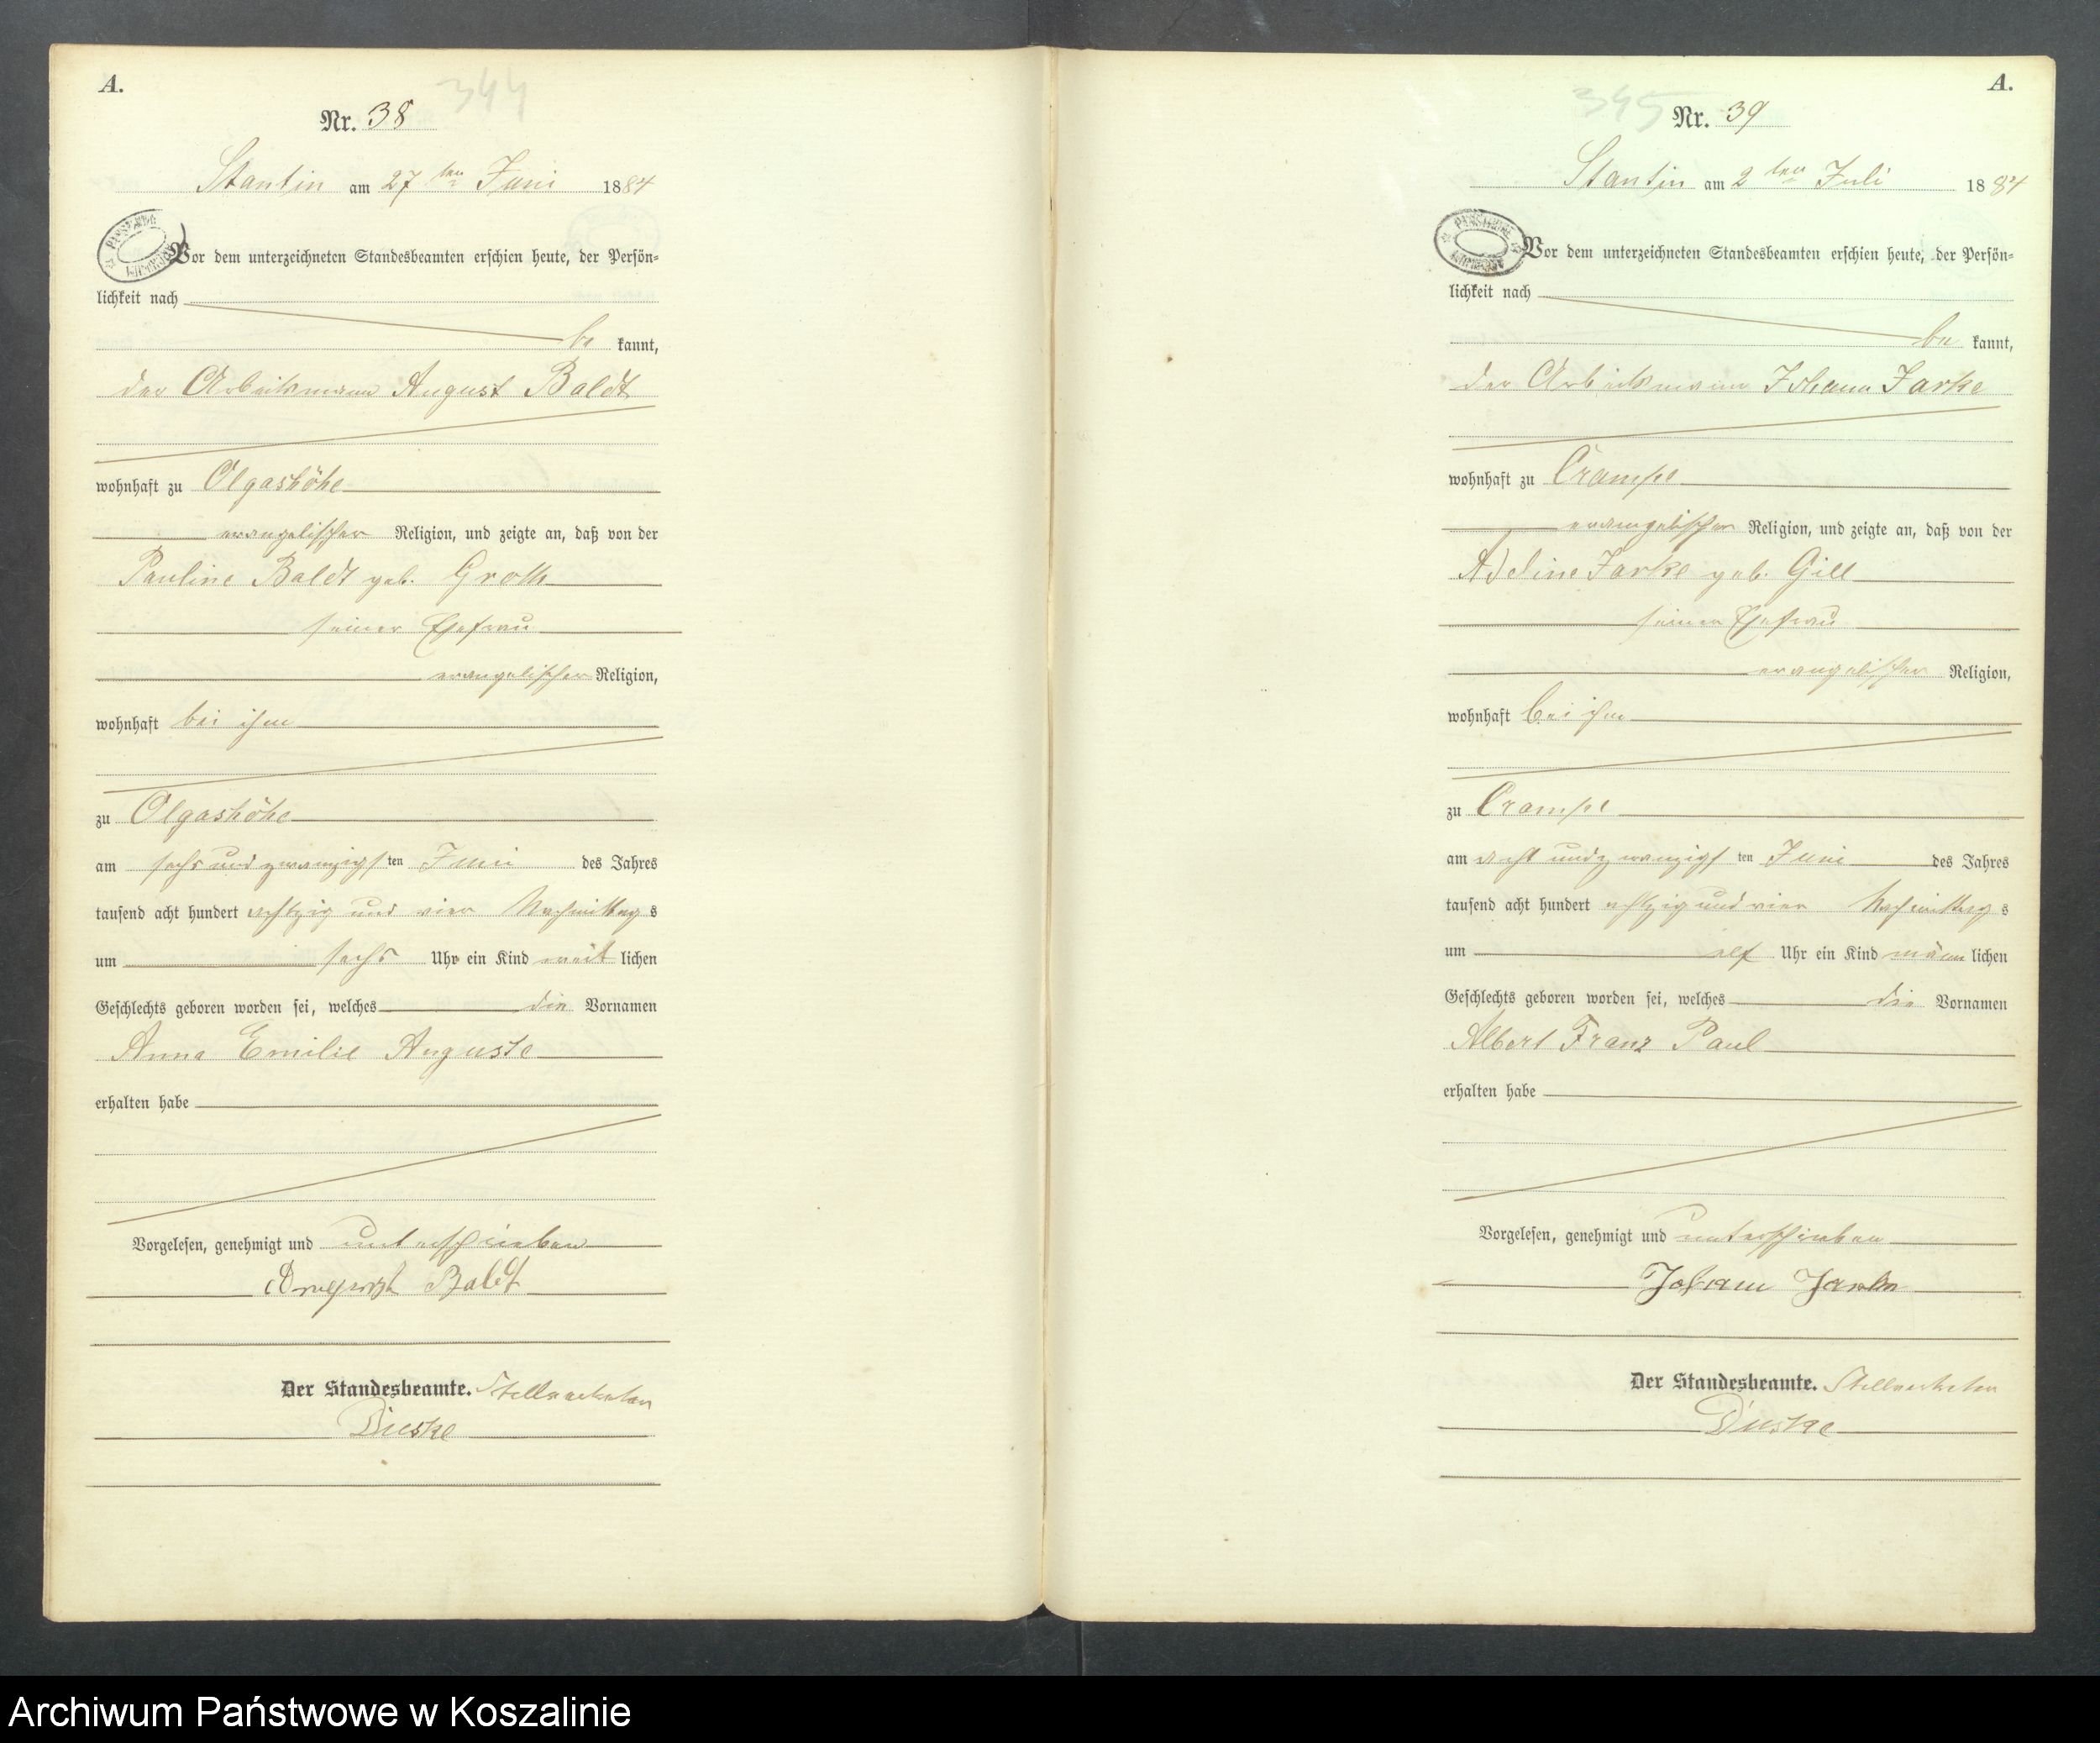 A.
344
Nr. 38
Stantin am 27 ten Juni 1884
Vor dem unterzeichneten Standesbeamten erschien heute, der Persön-
lichkeit nach
be kannt,
der Arbeitsmann August Baldt
wohnhaft zu Olgashöhe
evangelischer Religion, und zeigte an, daß von der
Pauline Baldt geb. Groth
seiner Ehefrau
evangelischer Religion,
wohnhaft bei ihm
zu Olgashöhe
am sechs und zwanzigs ten Juni des Jahres
tausend acht hundert achtzig und vier Nachmittag s
um sechs Uhr ein Kind weib lichen
Geschlechts geboren worden sei, welches die Vornamen
Anna Emilie Auguste
erhalten habe
Vorgelesen, genehmigt und unterschrieben
August Baldt
Der Standesbeamte. Stellvertreter
A.
345
Nr. 39
Stantin am 2 ten Juli 1884
Vor dem unterzeichneten Standesbeamten erschien heute, der Persön-
lichkeit nach
be kannt,
der Arbeitsmann Johann Jarke
wohnhaft zu Crampe
evangelischer Religion, und zeigte an, daß von der
Adeline Jarke geb. Gill
seiner Ehefrau
evangelischer Religion,
wohnhaft bei ihm
zu Crampe
am acht und zwanzigs ten Juni des Jahres
tausend acht hundert achtzig und vier Nachmittag s
um elf Uhr ein Kind männ lichen
Geschlechts geboren worden sei, welches die Vornamen
Albert Franz Paul
erhalten habe
Vorgelesen, genehmigt und unterschrieben
Johann Jarke
Der Standesbeamte. Stellvertreter
Archiwum Państwowe w Koszalinie